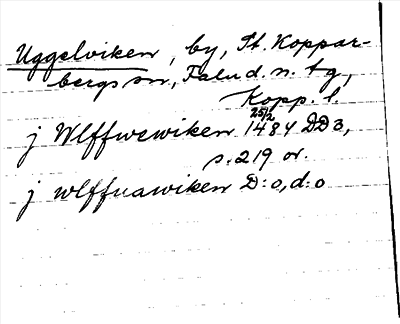 Uggelviken, by, St. Koppar-
bergs sn, Falu d. n. tg,
Kopp. l.
j Wlffwewiken 25/2 1484 DD3,
s. 219 or.
j wlffuawiken D:o, d:o